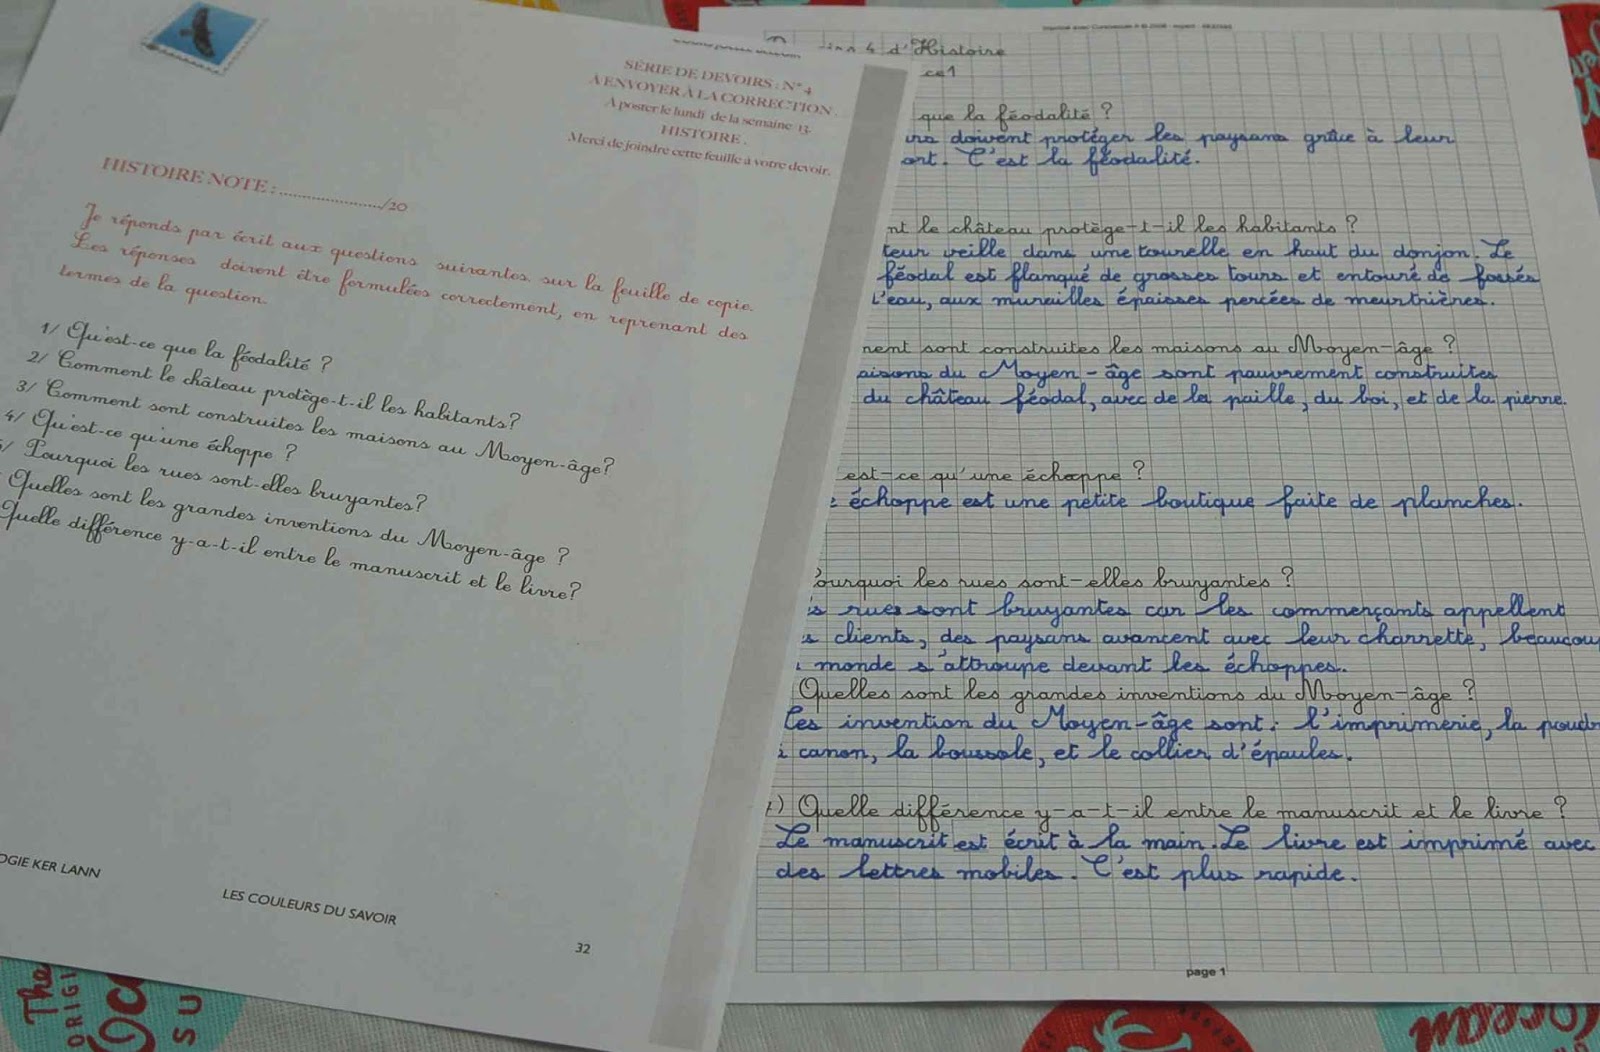 SÉRIE DE DEVOIRS : N° 4
À ENVOYER À LA CORRECTION .
A poster le lundi de la semaine 13.
HISTOIRE .
Merci de joindre cette feuille à votre devoir.
HISTOIRE NOTE : ....................../20
Je réponds par écrit aux questions suivantes sur la feuille de copie.
Les réponses doivent être formulées correctement, en reprenant des
termes de la question.
1/ Qu'est-ce que la féodalité ?
2/ Comment le château protège-t-il les habitants?
3/ Comment sont construites les maisons au Moyen-âge?
4/ Qu'est-ce qu'une échoppe ?
/ Pourquoi les rues sont-elles bruyantes?
Quelles sont les grandes inventions du Moyen-âge ?
Quelle différence y-a-t-il entre le manuscrit et le livre?
OGIE KER LANN
LES COULEURS DU SAVOIR
32
4 d'Histoire
ce1
que la féodalité ?
doivent protéger les paysans grâce à leur
ort. C'est la féodalité.
nt le château protège-t-il les habitants ?
teur veille dans une tourelle en haut du donjon. Le
féodal est flanqué de grosses tours et entouré de fossés
l'eau, aux murailles épaisses percées de meurtrières.
ment sont construites les maisons au Moyen-âge ?
aisons du Moyen-âge sont pauvrement construites
du château féodal, avec de la paille, du boi, et de la pierre.
est-ce qu'une échoppe ?
échoppe est une petite boutique faite de planches.
Pourquoi les rues sont-elles bruyantes ?
s rues sont bruyantes car les commerçants appellent
s clients, des paysans avancent avec leur charrette, beaucou
monde s'attroupe devant les échoppes.
Quelles sont les grandes inventions du Moyen-âge ?
Les invention du Moyen-âge sont : l'imprimerie, la poudr
canon, la boussole, et le collier d'épaules.
) Quelle différence y-a-t-il entre le manuscrit et le livre ?
Le manuscrit est écrit à la main. Le livre est imprimé avec
des lettres mobiles. C'est plus rapide.
page 1
The
ORIGI
SU
Ocean